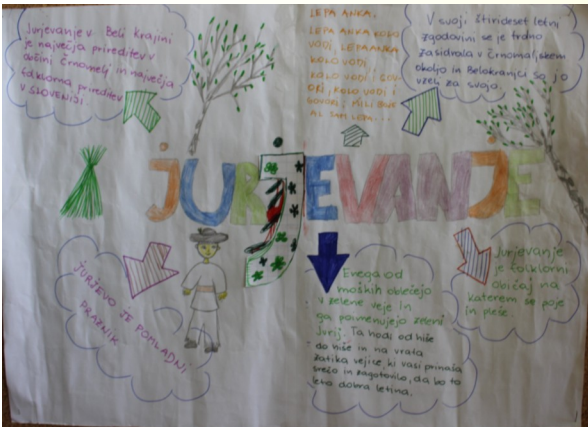 Jurjevanje v Beli krajini
je največja prireditev v
občini Črnomelj in največja
folklorna prireditev
v SLOVENIJI.
LEPA ANKA.
LEPA ANKA KOLO
VODI, LEPA ANKA
KOLO VODI,
KOLO VODI I GOV-
ORI, KOLO VODI I
GOVORI,
AL SAM LEPA...
V svoji štirideset letni
zgodovini se je trdno
zasidrala v Črnomaljskem
okolju in Belokranjci so jo
vzeli za svojo.
JURJEVANJE
JURJEVO JE POMLADNI
PRAZNIK.
Enega od
moških oblečejo
v zelene veje in
ga poimenujejo zeleni
Jurij. Ta hodi od hiše
do hiše in na vrata
zatika vejice, ki vasi prinaša
srečo in zagotovilo, da bo to
leto dobra letina.
Jurjevanje
je folklorni
običaj na
katerem se poje
in pleše.